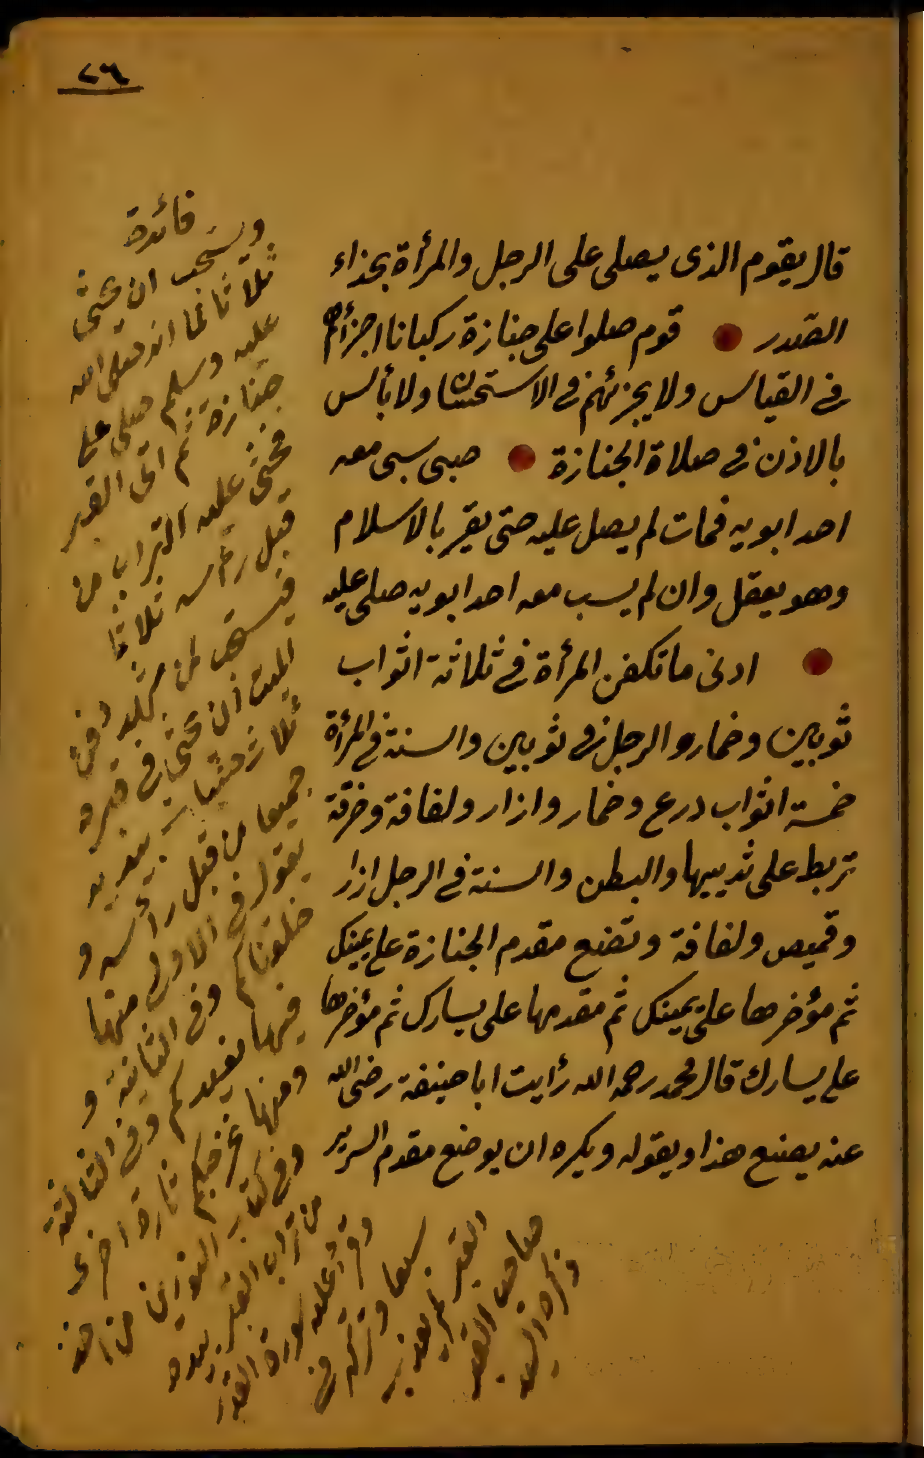 ٢٦
قال يقوم الذى يصلى على الرجل والمرأة بحذاء
الصدر قوم صلوا على جنازة ركبانا اجزأهم
فى القياس ولا يجزئهم فى الاستحسان ولا بأس
بالاذن فى صلاة الجنازة صبى سبى معه
احد ابويه فمات لم يصل عليه حتى يقر بالاسلام
وهو يعقل وان لم يسب معه احد ابويه صلى عليه
ادنى ما تكفن المرأة فى ثلاثة اثواب
ثوبين وخمار والرجل فى ثوبين والسنة فى المرأة
خمسة اثواب درع وخمار وازار ولفافة وخرقة
تربط على ثدييها والبطن والسنة فى الرجل ازار
وقميص ولفافة وتضع مقدم الجنازة على يمينك
ثم مؤخرها على يمينك ثم مقدمها على يسارك ثم مؤخرها
على يسارك قال محمد رحمه الله رأيت ابا حنيفة رضى الله
عنه يصنع هذا ويقوله ويكره ان يوضع مقدم السرير
فائدة
ويستحب ان يحثى
ثلاثا لما انه صلى الله
عليه وسلم صلى على
جنازة ثم اتى القبر
فحثى عليه التراب من
قبل رأسه ثلاثا
فيستحب لمن شهد دفن
الميت ان يحثى فى قبره
ثلاث حثيات بيديه
جميعا من قبل رأسه و
يقول فى الاولى منها
خلقناكم وفى الثانية و
فيها نعيدكم وفى الثالثة
ومنها نخرجكم تارة اخرى
وفى كتاب النورين من اخذ
من تراب القبر بيده
وقرأ عليه سورة القدر
سبعا وتركه فى
القبر لم يعذب
صاحب القبر
ذكره السيد